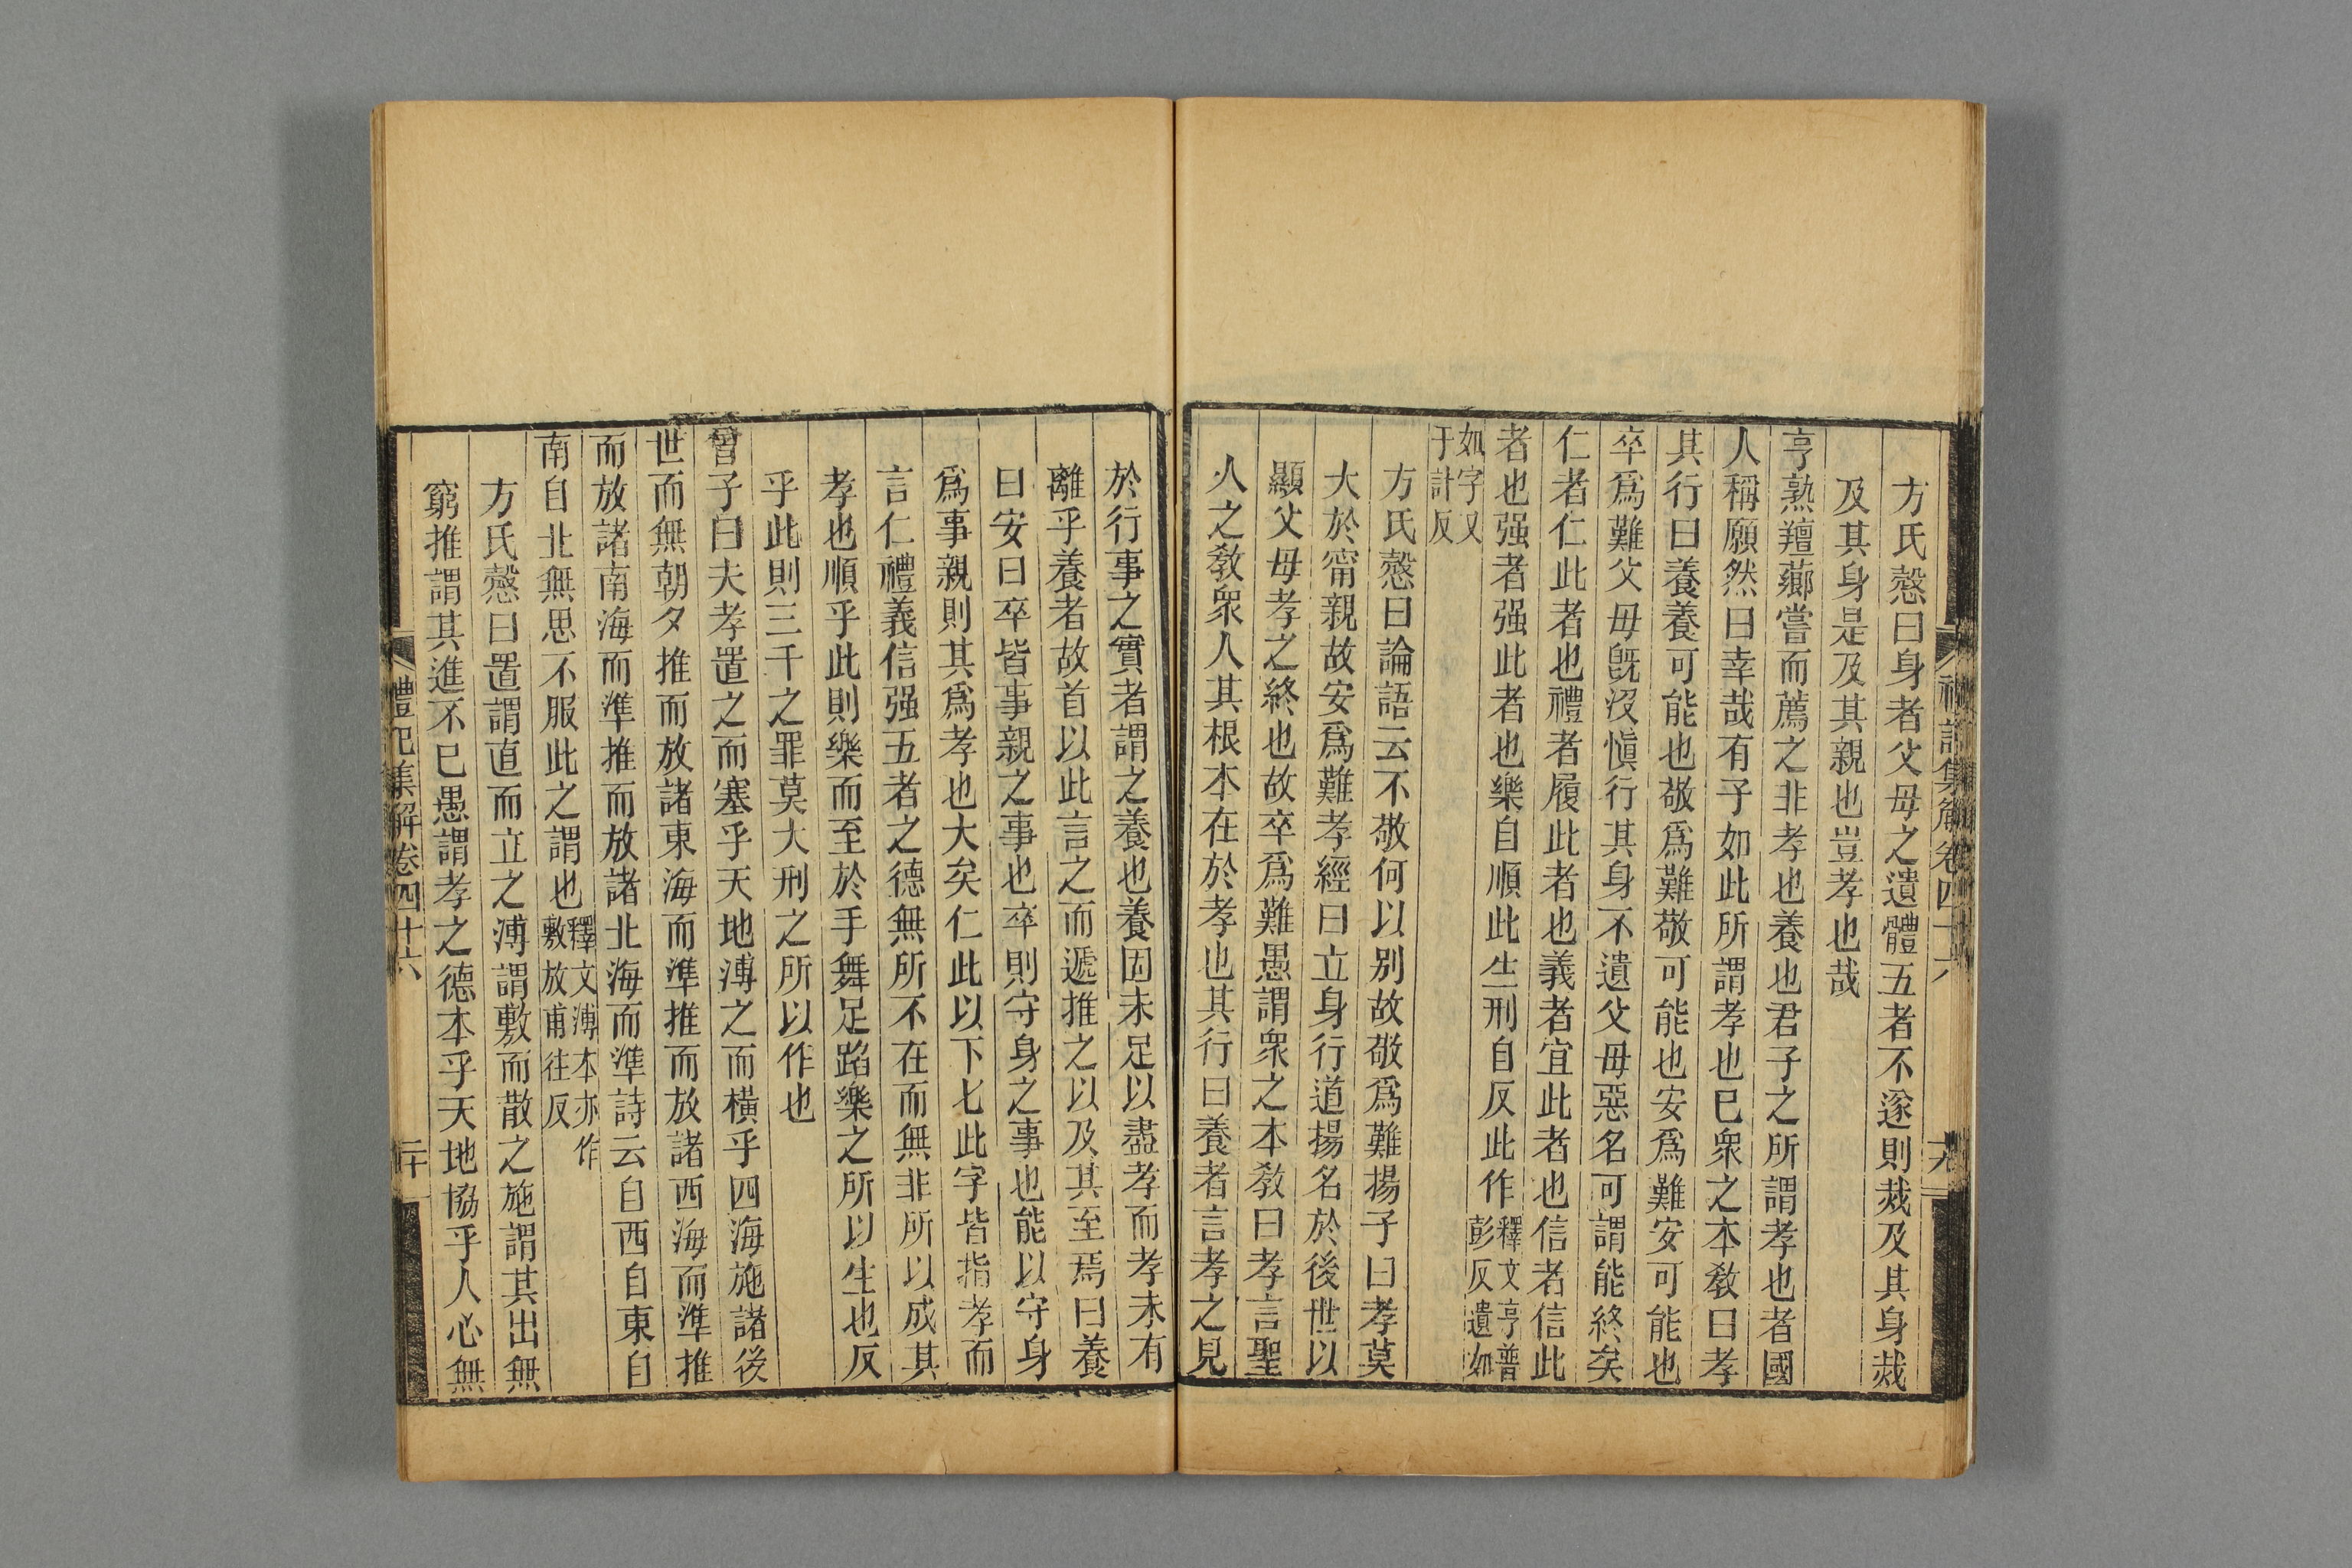 方氏慤曰身者父母之遺體五者不遂則烖及其身烖
及其身是及其親也豈孝也哉
亨孰羶薌嘗而薦之非孝也養也君子之所謂孝也者國
人稱願然曰幸哉有子如此所謂孝也已衆之本教曰孝
其行曰養養可能也敬爲難敬可能也安爲難安可能也
卒爲難父母旣沒愼行其身不遺父母惡名可謂能終矣
仁者仁此者也禮者履此者也義者宜此者也信者信此
者也强者强此者也樂自順此生刑自反此作釋文亨普
彭反遺如
如字又
于計反
方氏慤曰論語云不敬何以別故敬爲難揚子曰孝莫
大於甯親故安爲難孝經曰立身行道揚名於後世以
顯父母孝之終也故卒爲難愚謂衆之本教曰孝言聖
人之教衆人其根本在於孝也其行曰養者言孝之見
於行事之實者謂之養也養固未足以盡孝而孝未有
離乎養者故首以此言之而遞推之以及其至焉曰養
曰安曰卒皆事親之事也卒則守身之事也能以守身
爲事親則其爲孝也大矣仁此以下七此字皆指孝而
言仁禮義信强五者之德無所不在而無非所以成其
孝也順乎此則樂而至於手舞足蹈樂之所以生也反
乎此則三千之罪莫大刑之所以作也
曾子曰夫孝置之而塞乎天地溥之而橫乎四海施諸後
世而無朝夕推而放諸東海而準推而放諸西海而準推
而放諸南海而準推而放諸北海而準詩云自西自東自
南自北無思不服此之謂也釋文溥本亦作
敷放甫往反
方氏慤曰置謂直而立之溥謂敷而散之施謂其出無
窮推謂其進不已愚謂孝之德本乎天地協乎人心無
禮記集解卷四十六
二十